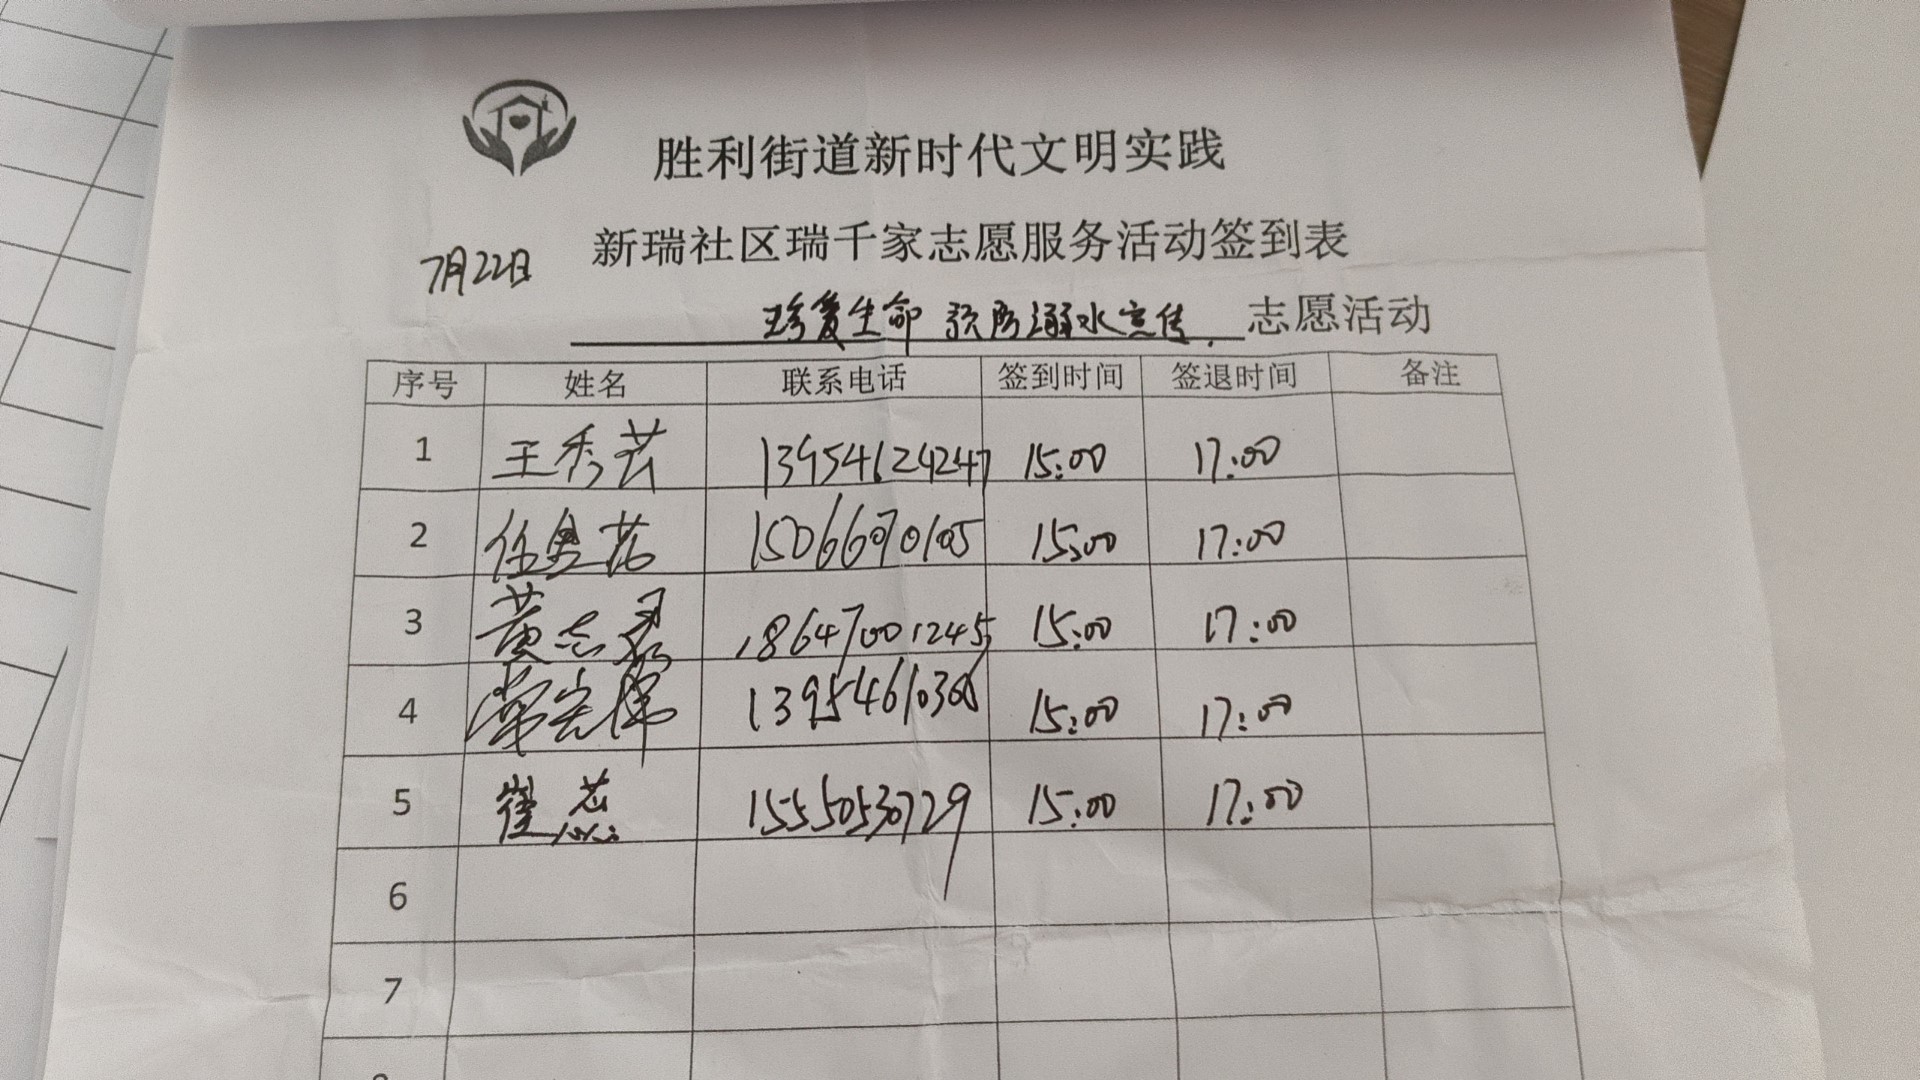 胜利街道新时代文明实践
新瑞社区瑞千家志愿服务活动签到表
7月22日
珍爱生命 预防溺水宣传. 志愿活动
序号 姓名 联系电话 签到时间 签退时间 备注
1 王秀芸 13954624247 15:00 17:00
2 15066070105 15:00 17:00
3 黄志录 18647001245 15:00 17:00
4 15:00 17:00
5 崔蕊 15550530729 15:00 17:00
6
7